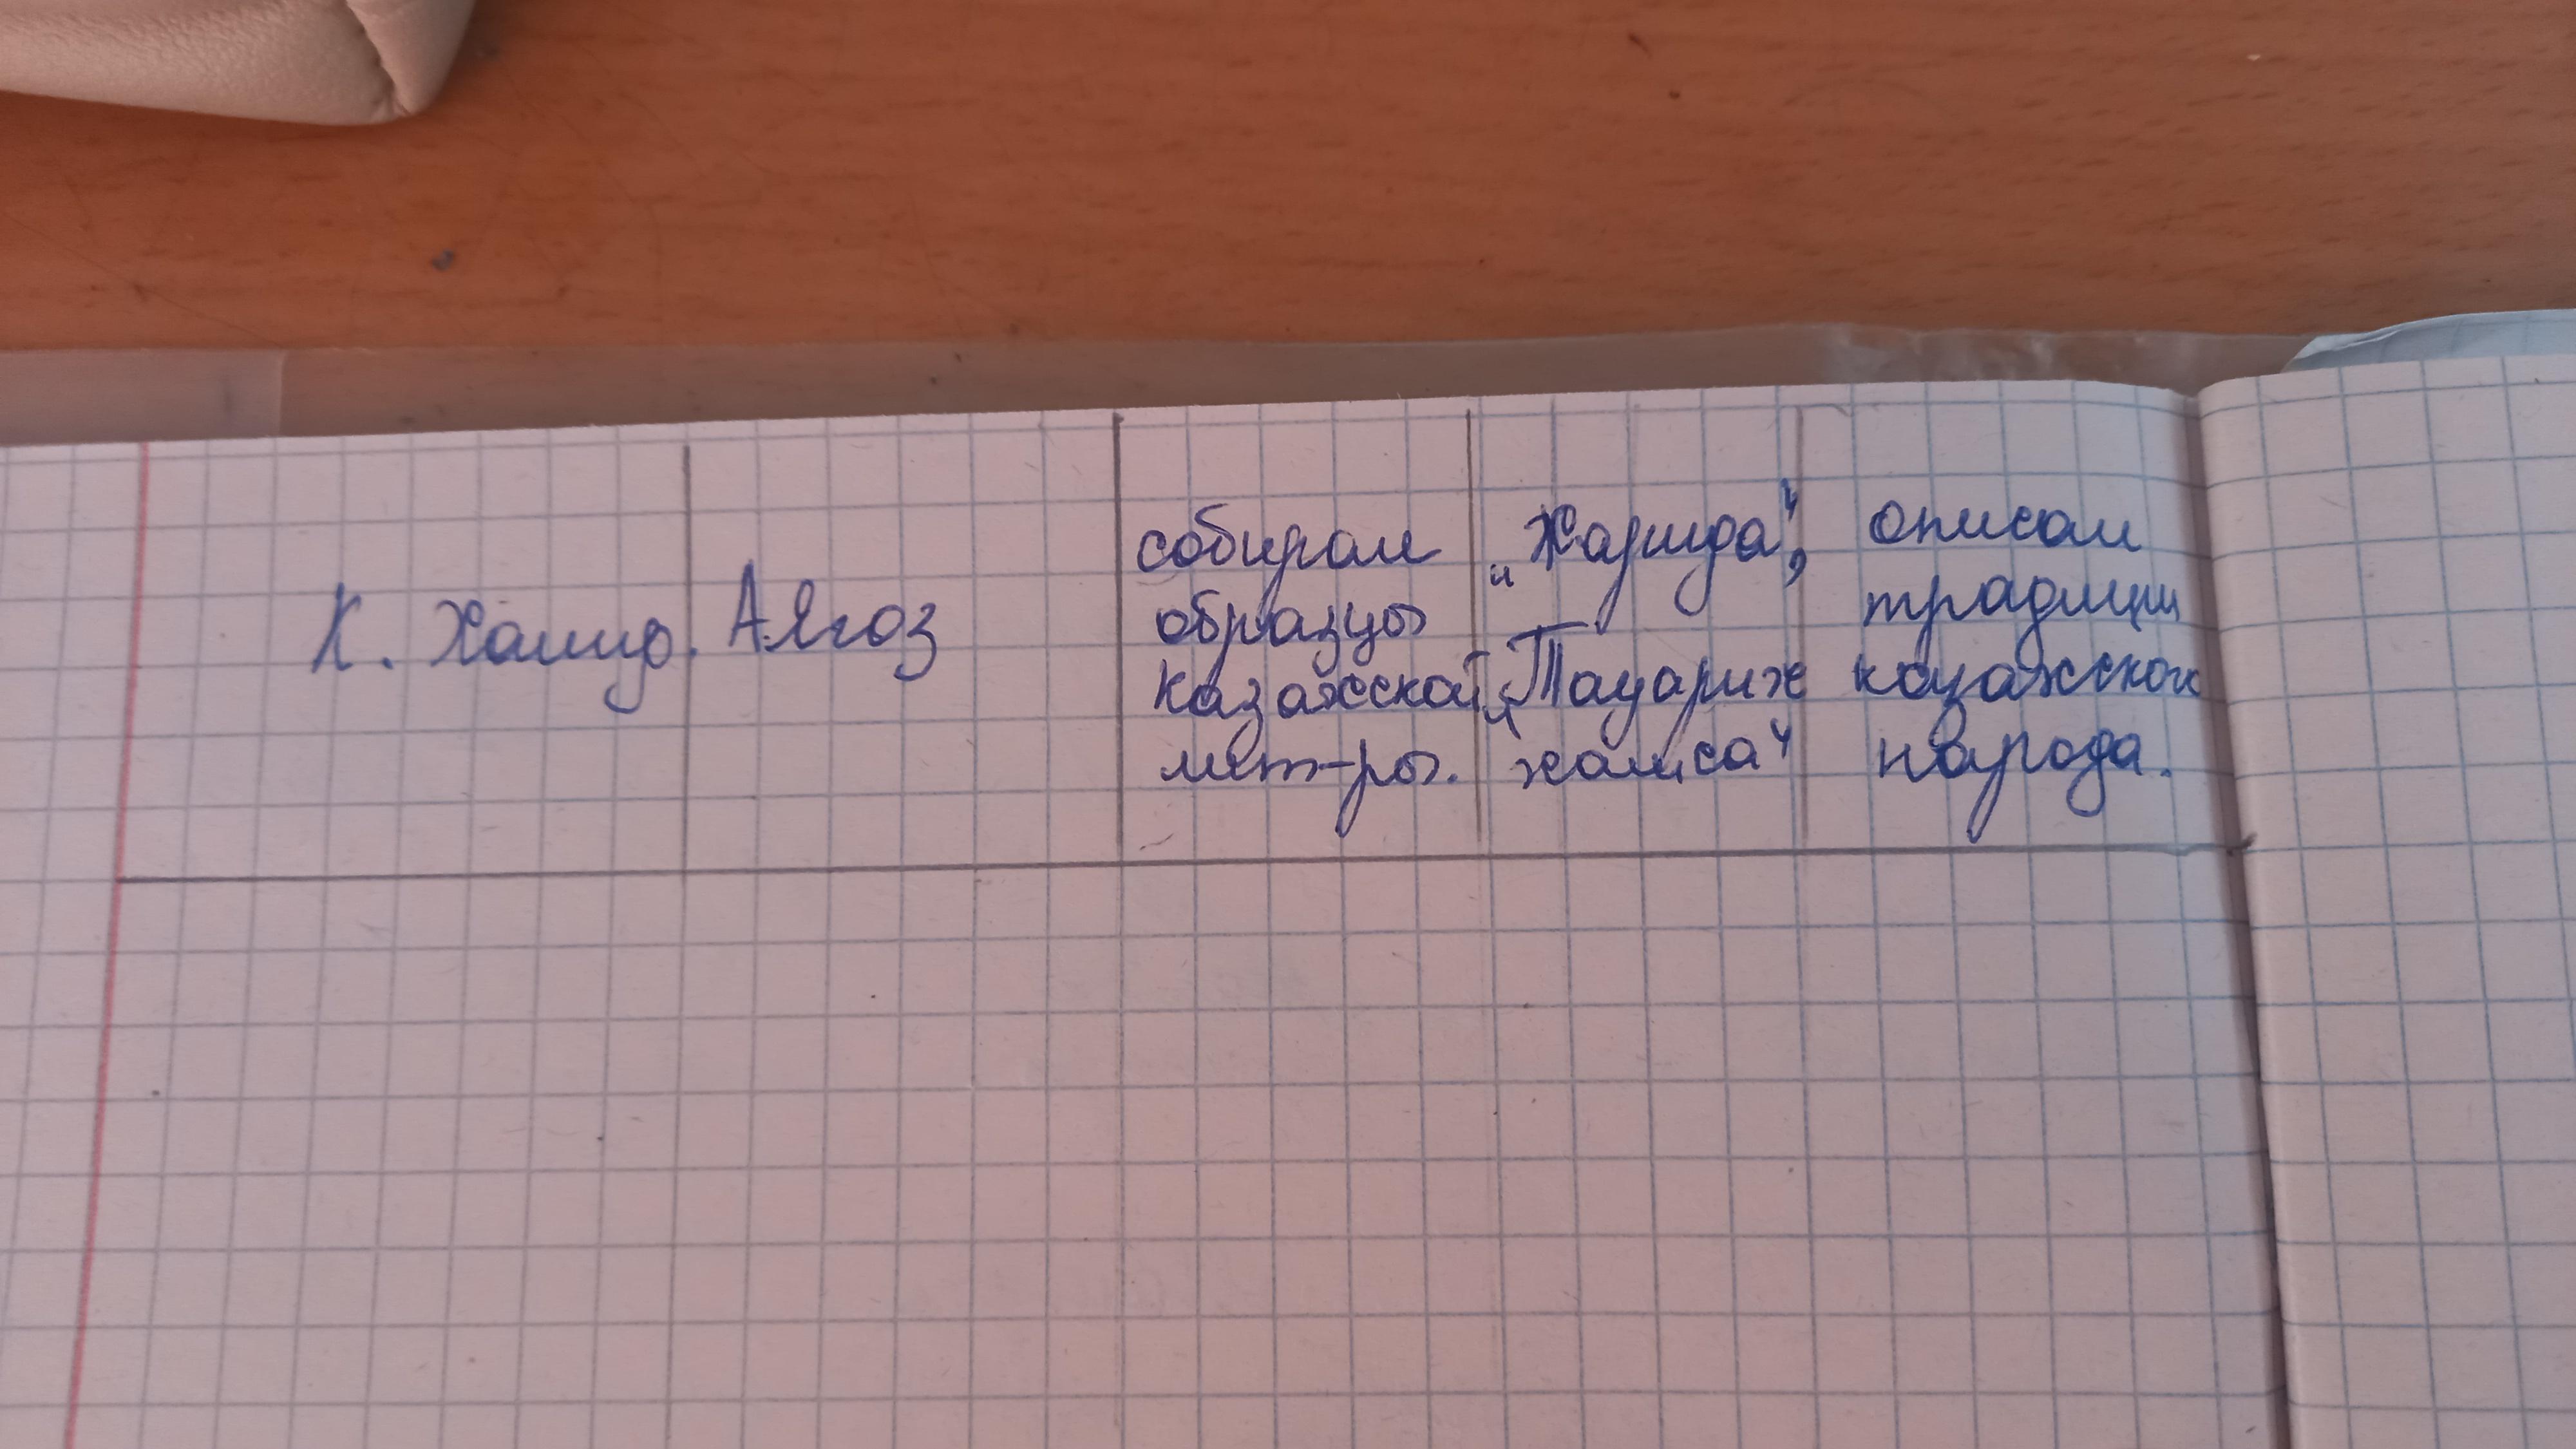 К. Халид.
Аягоз
собирал
образцы
казахской
лит-ры.
„Жарида",
„Тауарих
хамса"
описал
традиции
казахского
народа.